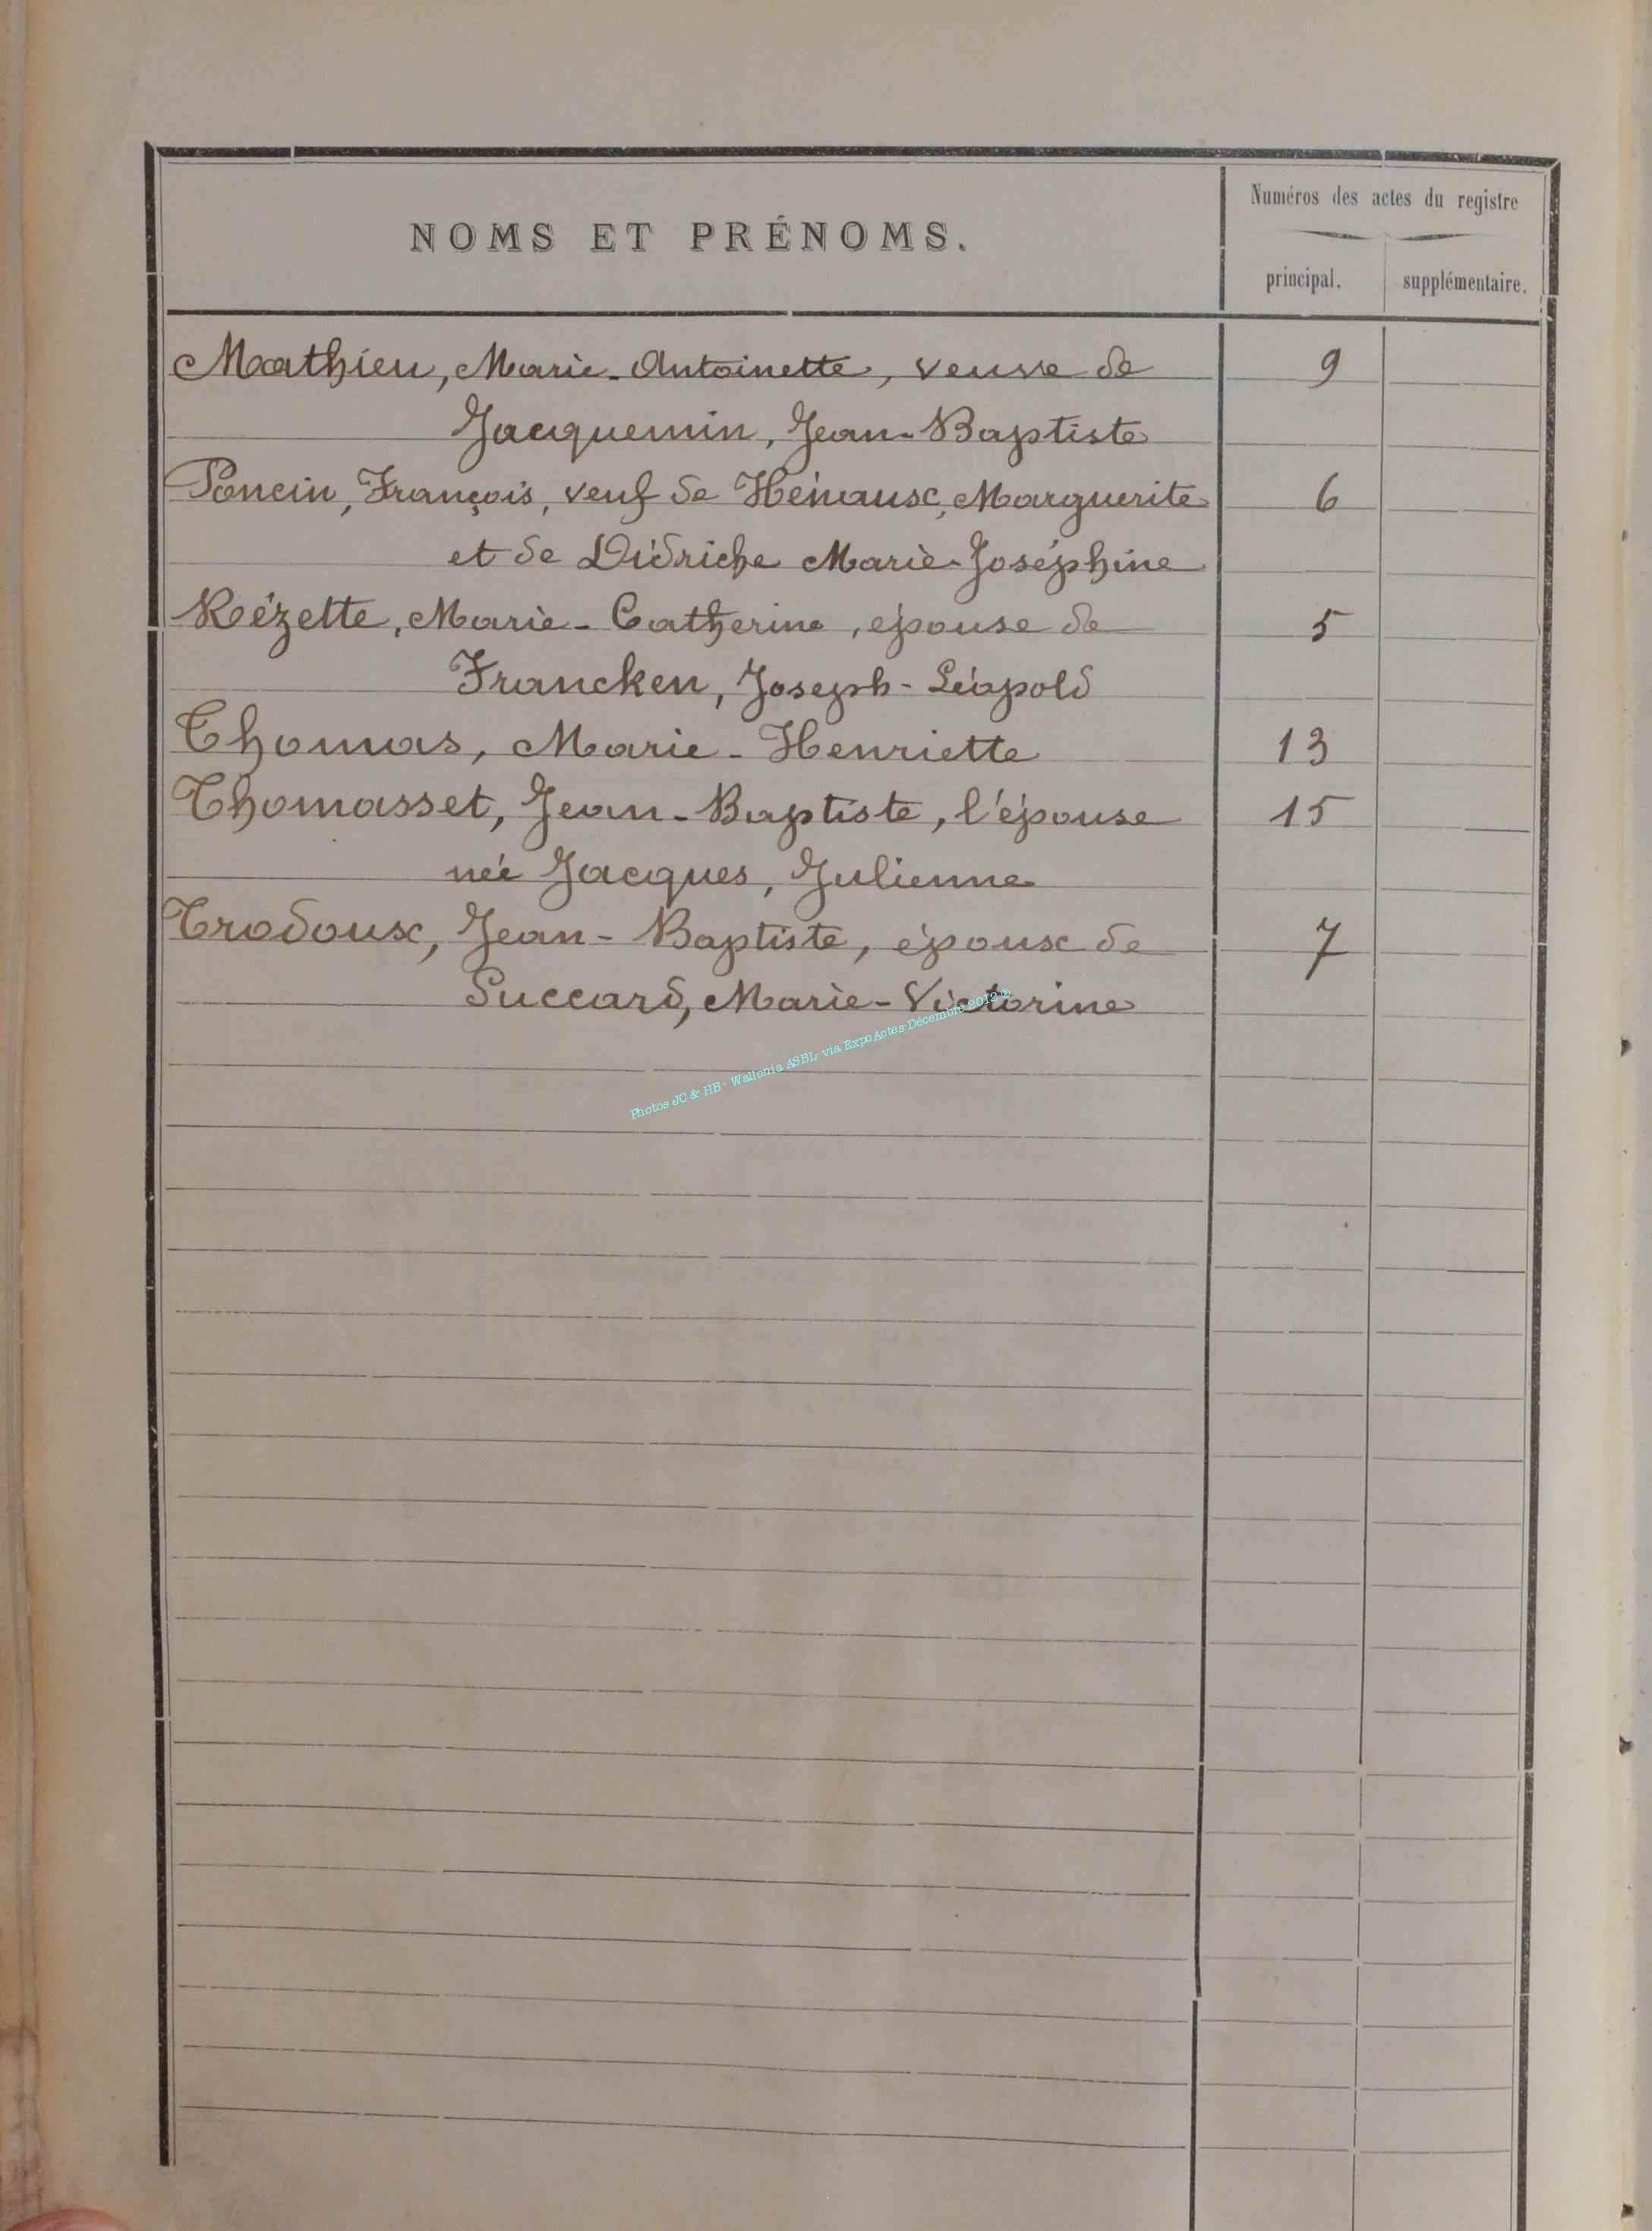 NOMS ET PRÉNOMS.
Numéros des actes du registre
principal. supplémentaire.
Mathieu, Marie-Antoinette, veuve de 9
Jacquemin, Jean-Baptiste
Poncin, François, veuf de Hénoux, Marguerite 6
et de Didriche Marie-Joséphine
Rézette, Marie-Catherine, épouse de 5
Francken, Joseph-Léopold
Thomas, Marie-Henriette 13
Thomasset, Jean-Baptiste, l'épouse 15
née Jacques, Julienne
Trodoux, Jean-Baptiste, époux de 7
Succard, Marie-Victorine
Photos JC & HB - Wallonia ASBL via ExpoActes Décembre 2012